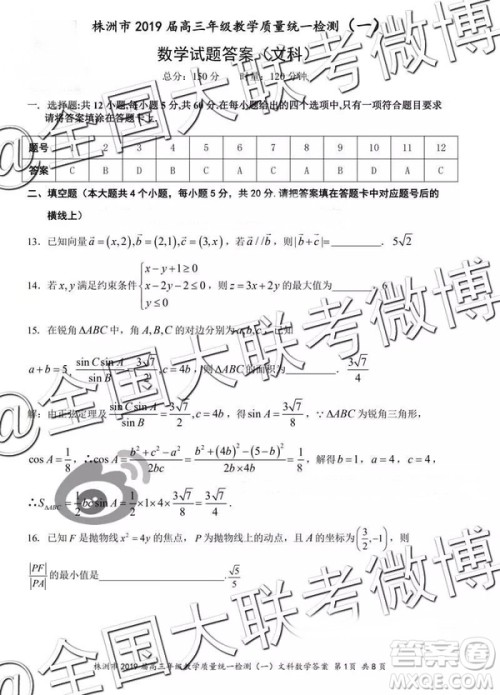 株洲市 2019 届高三年级教学质量统一检测（一）
数学试题答案（文科）
总分：150 分 时量：120 分钟
一．选择题:共 12 小题,每小题 5 分,共 60 分,在每小题给出的四个选项中,只有一项符合题目要求
请将答案填涂在答题卡上.
题号 1 2 3 4 5 6 7 8 9 10 11 12
答案 C B D B C A C D A A C
二．填空题（本大题共 4 个小题，每小题 5 分，共 20 分.请把答案填在答题卡中对应题号后的
横线上）
13．已知向量 a=(x,2),b=(2,1),c=(3,x)，若 a//b，则|b+c|= 5√2
14．若 x,y 满足约束条件 { x-y+1≥0 x-2y-2≤0 y≤0 ，则 z=3x+2y 的最大值为 6
15．在锐角ΔABC 中，角 A,B,C 的对边分别为 a,b,c，已知
a+b=5, sinCsinA/sinB=3√7/2, c=4b，则ΔABC 的面积为 3√7/4
解：由正弦定理及 sinCsinA/sinB=3√7/2, c=4b，得 sin A=3√7/8，∵ΔABC 为锐角三角形，
cos A=1/8，∴cos A=(b²+c²-a²)/2bc=(b²+(4b)²-(5-b)²)/(2b×4b)=1/8，解得 b=1, a=4，
∴S△ABC=1/2 bc sin A=1/2×1×4×3√7/8=3√7/4
16．已知 F 是抛物线 x²=4y 的焦点，P 为抛物线上的动点，且 A 的坐标为(3/2,-1)，则
|PF|/|PA| 的最小值是 √5/5
株洲市 2019 届高三年级教学质量统一检测（一）文科数学答案 第 1 页 共 8 页
@全国大联考微博
@全国大联考微博
@全国大联考微博